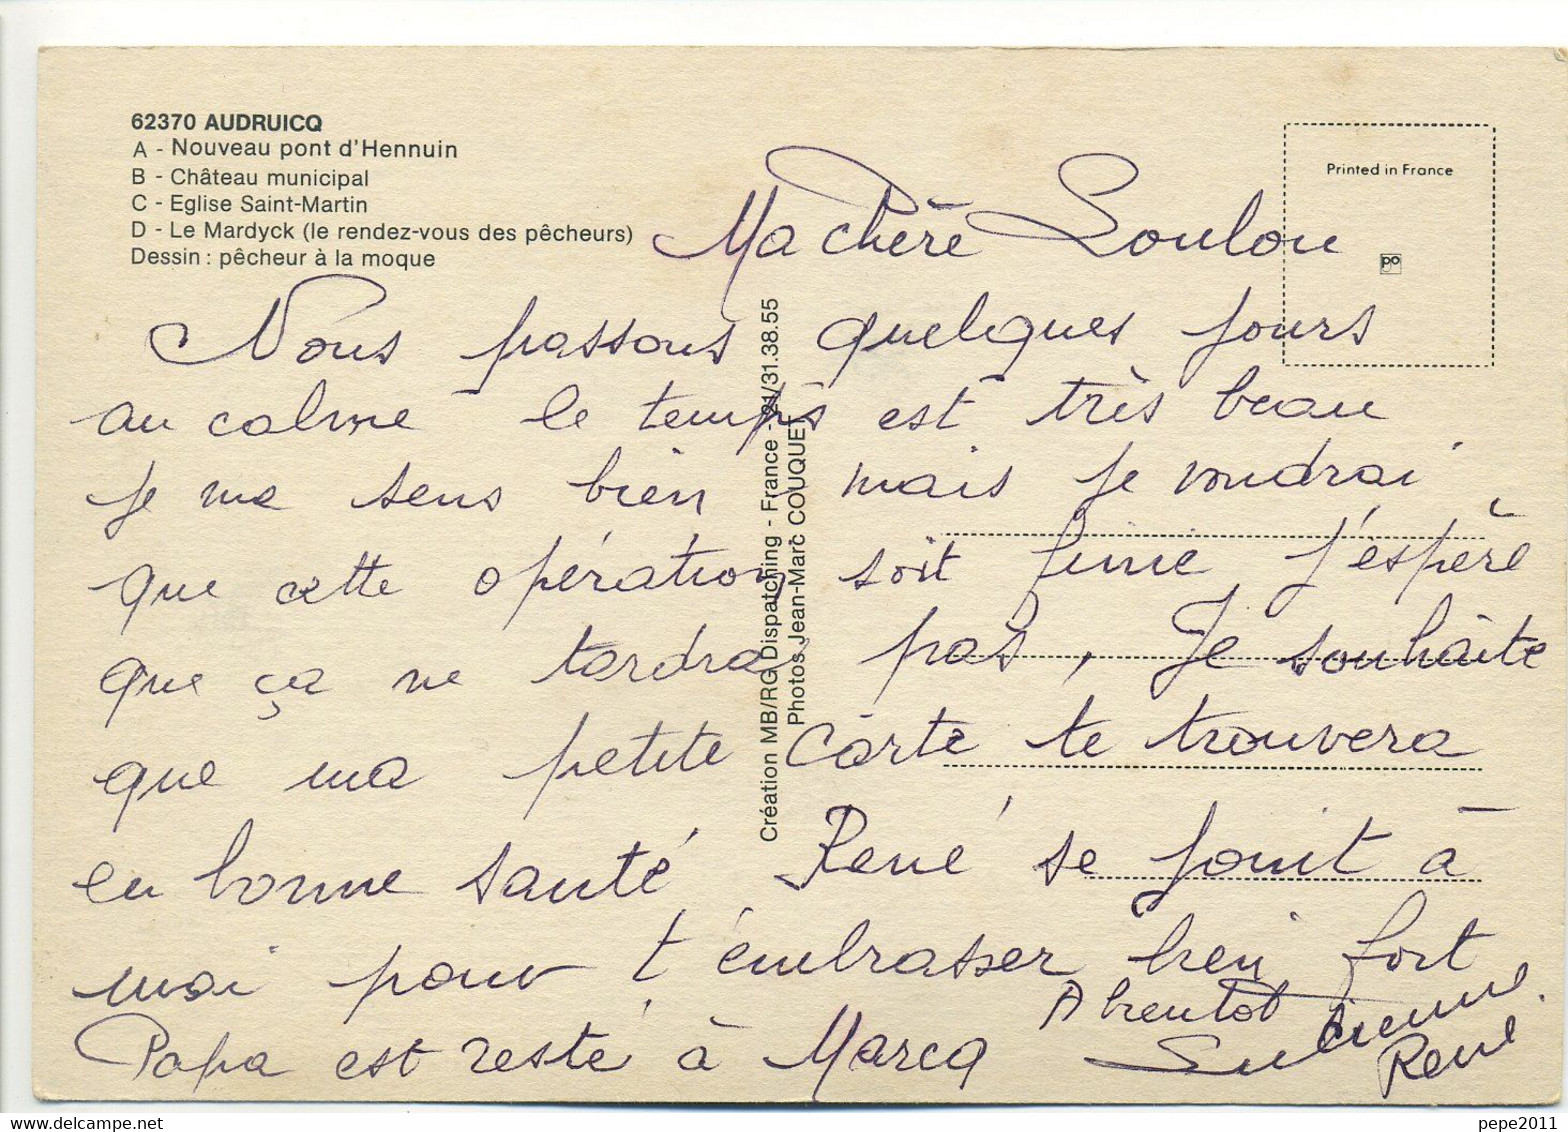 62370 AUDRUICQ
A - Nouveau pont d'Hennuin
B - Château municipal
C - Eglise Saint-Martin
D - Le Mardyck (le rendez-vous des pêcheurs)
Dessin : pêcheur à la moque
Printed in France
po
Ma chère Loulou
Nous passons quelques jours
au calme le temps est très beau
je me sens bien, mais je voudrai
que cette opération soit finie j'espère
que ça ne tardrai pas, Je souhaite
que ma petite carte te trouvera
en bonne santé, René se joint à
moi pour t'embrasser bien fort
Papa est resté à Marcq
A bientot
Lucienne.
René
Création MB/RG Dispatching - France - 21/31.38.55
Photos Jean-Marc COUQUET
pepe2011